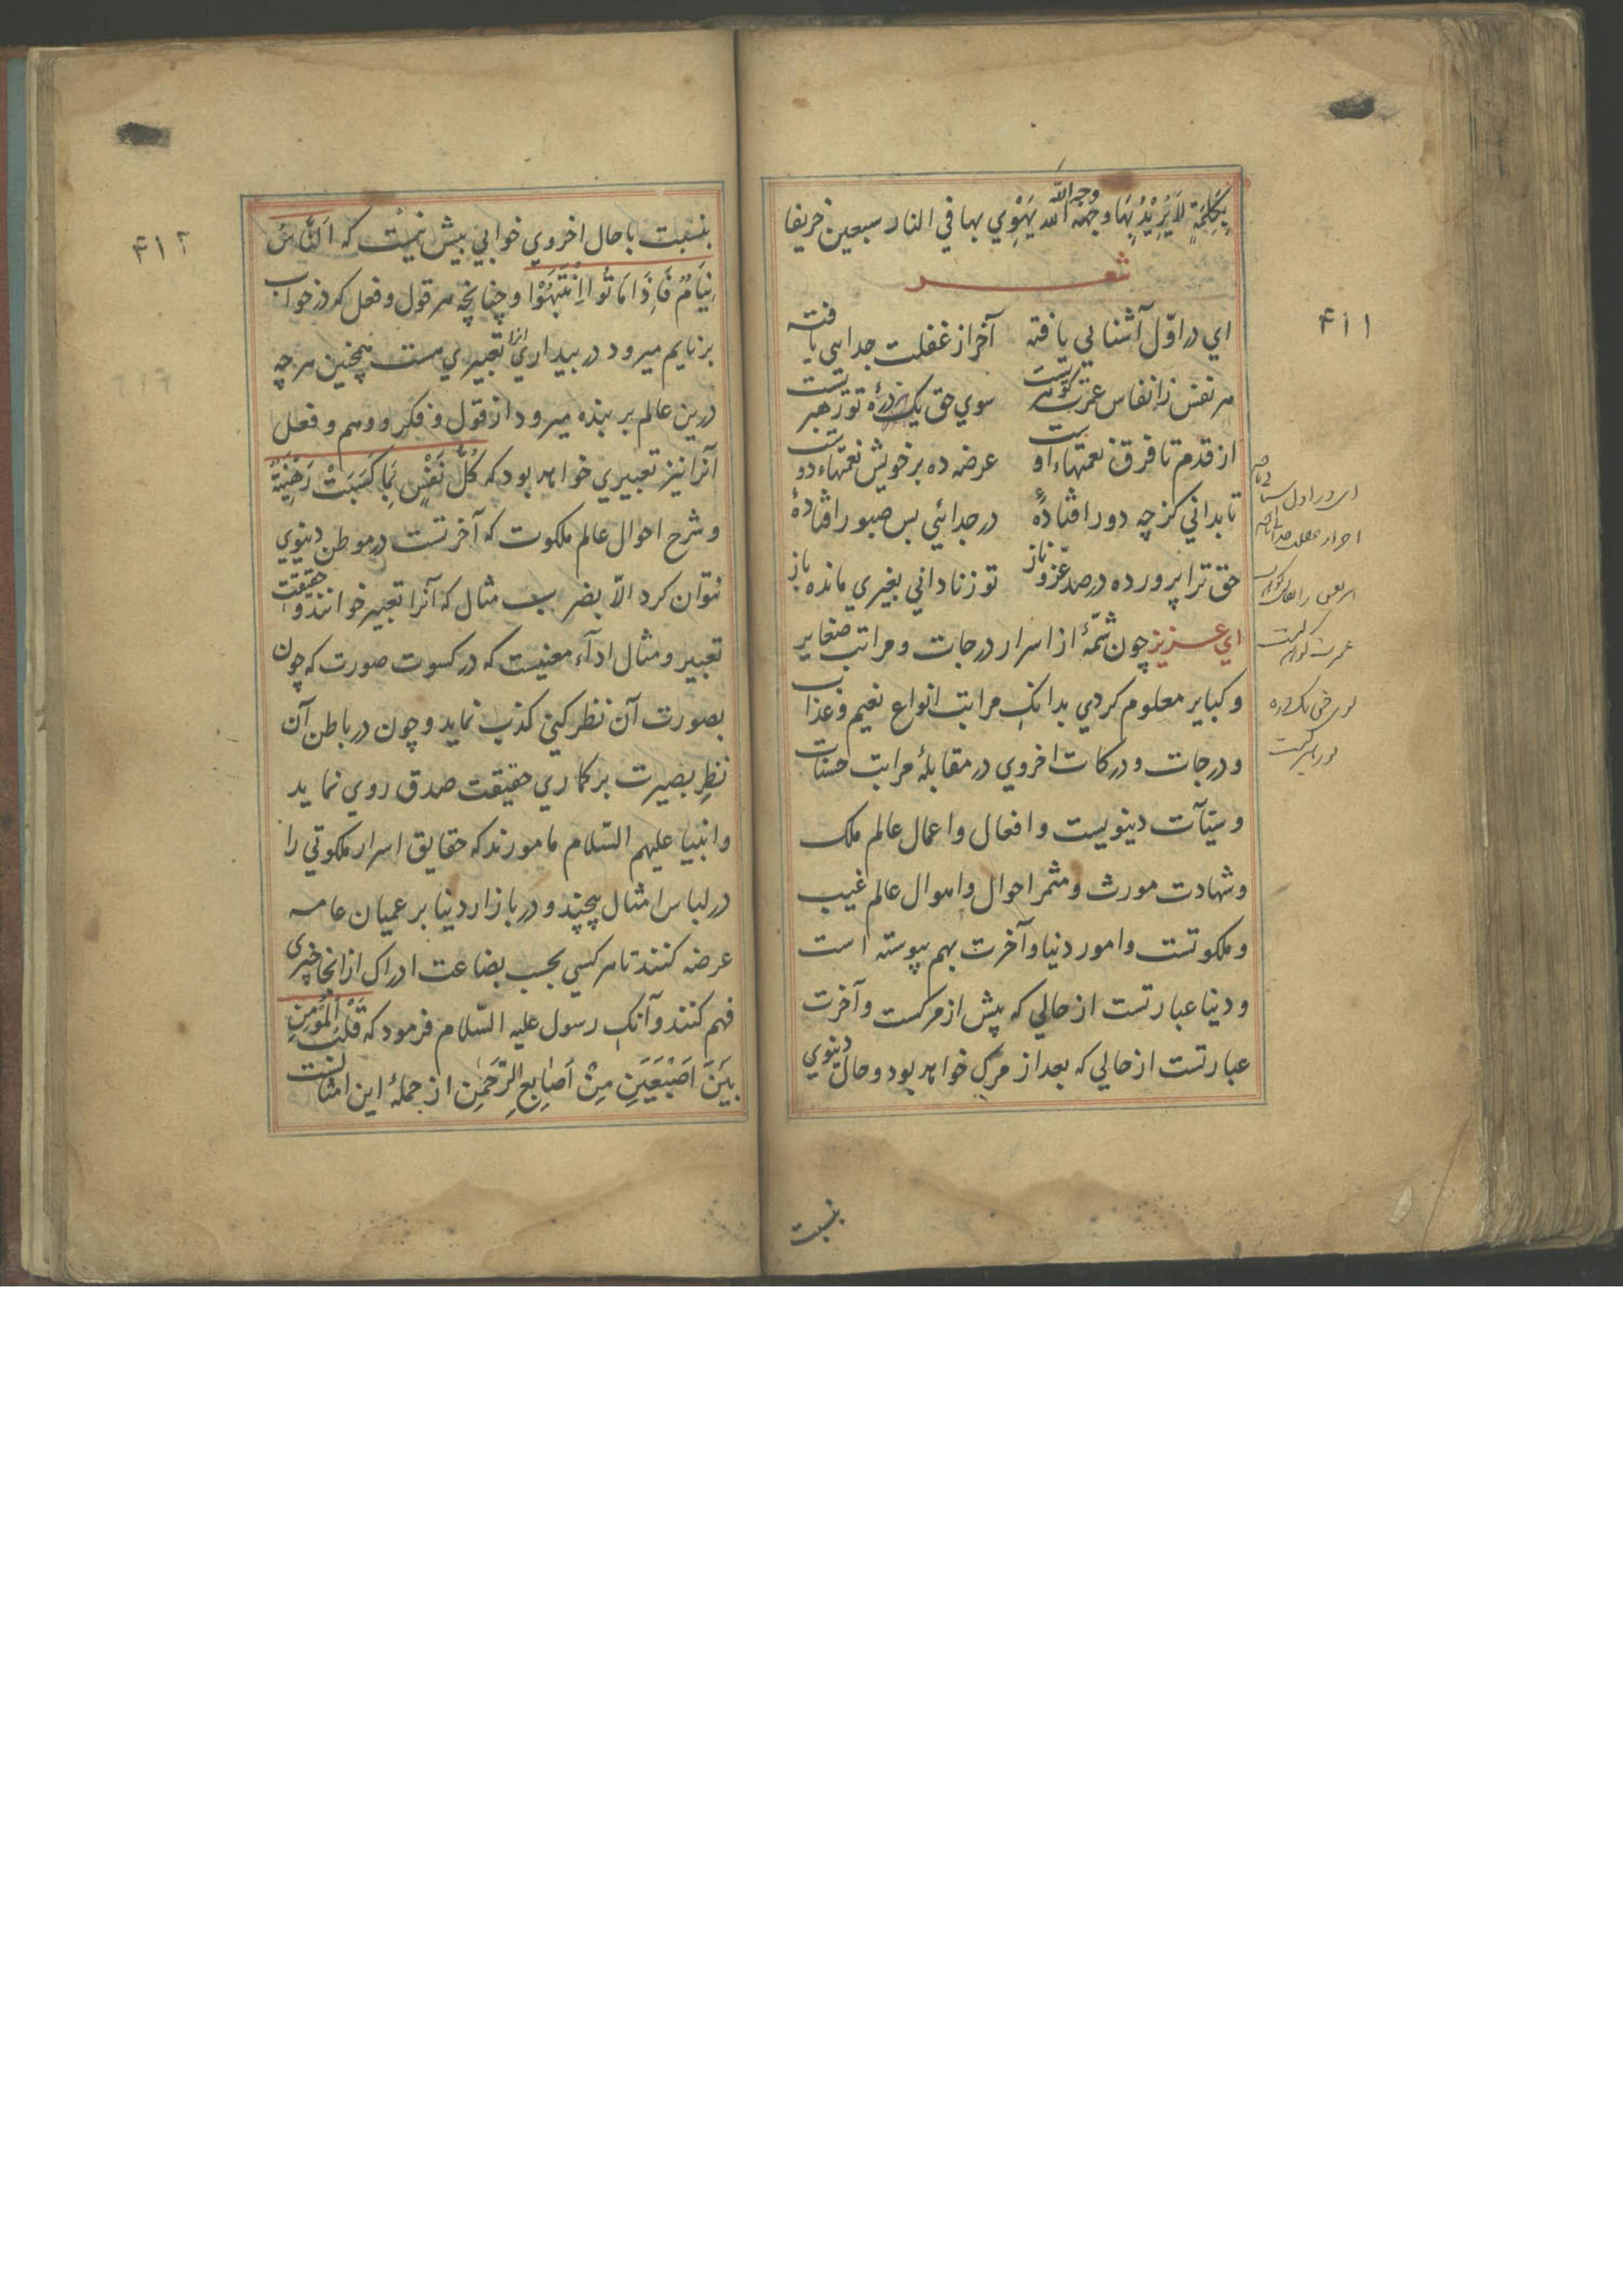 ۴۱۱
بِكَلِمَةٍ لَا يُرِيْدُ بِهَا وجهه الله يَهْوِي بها في النار سبعين خريفا
وجه الله
شعر
اي در اوّل آشنايي يافته آخر از غفلت جدايي يافته
هر نفس ز انفاس عمرت گوهريست سوي حق يك ذرۀ تو رهبريست
از قدم تا فرق نعمتهاء اوست عرضه ده بر خويش نعمتهاء دوست
تا بداني كز چه دور افتادۀ در جدائي بس صبور افتادۀ
حق ترا پرورده در صد عزّ و ناز تو ز ناداني بغيري مانده باز
اي عزيز چون شمّۀ از اسرار درجات و مراتب صغاير
و كباير معلوم كردي بدانك مراتب انواع نعيم و عذاب
و درجات و دركات اخروي در مقابلۀ مراتب حسنات
و سيّآت دينويست و افعال و اعمال عالم ملك
و شهادت مورث و مثمر احوال و اهوال عالم غيب
و ملكوتست و امور دنيا و آخرت بهم پيوسته است
و دنيا عبارتست از حالي كه پيش از مركست و آخرت
عبارتست از حالي كه بعد از مرك خواهد بود و حال دينوي
بنسبت
۴۱۲
بنسبت با حال اخروي خوابي بيش نيست كه اَلنَّاسُ
نِيَامٌ فَاِذَا مَاتُوا اِنْتَبَهُوْا و چنانچه هر قول و فعل كه در خواب
بر نايم ميرود در بيداري آنرا تعبيري هست همچنين هر چه
درين عالم بر بنده ميرود از قول و فكر و وهم و فعل
آنرا نيز تعبيري خواهد بود كه كُلُّ نَفْسٍ بِمَا كَسَبَتْ رَهِيْنَةٌ
و شرح احوال عالم ملكوت كه آخرتست در موطن دينوي
نتوان كرد الاّ بضرب مثال كه آنرا تعبير خوانند و حقيقت
تعبير و مثال ادآء معنيست كه در كسوت صورت كه چون
بصورت آن نظر كني كذب نمايد و چون در باطن آن
نظرِ بصيرت بركماري حقيقت صدق روي نمايد
و انبيا عليهم السّلام مامورند كه حقايق اسرار ملكوتي را
در لباس امثال پيچند و در بازار دنيا بر عميان عامه
عرضه كنند تا هر كسي بحسب بضاعت ادراك از آنجا خبرى
فهم كنند و آنك رسول عليه السّلام فرمود كه قَلْبُ الْمُؤْمِنِ
بَيْنَ اَصْبَعَيْنِ مِنْ اَصَابِعِ الرَّحْمٰنِ از جملۀ اين امثالست